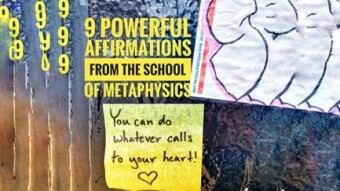 9 9 9
9 9 9
9 9 9
9 POWERFUL
AFFIRMATIONS
FROM THE SCHOOL
OF METAPHYSICS
You can do
whatever calls
to your heart!